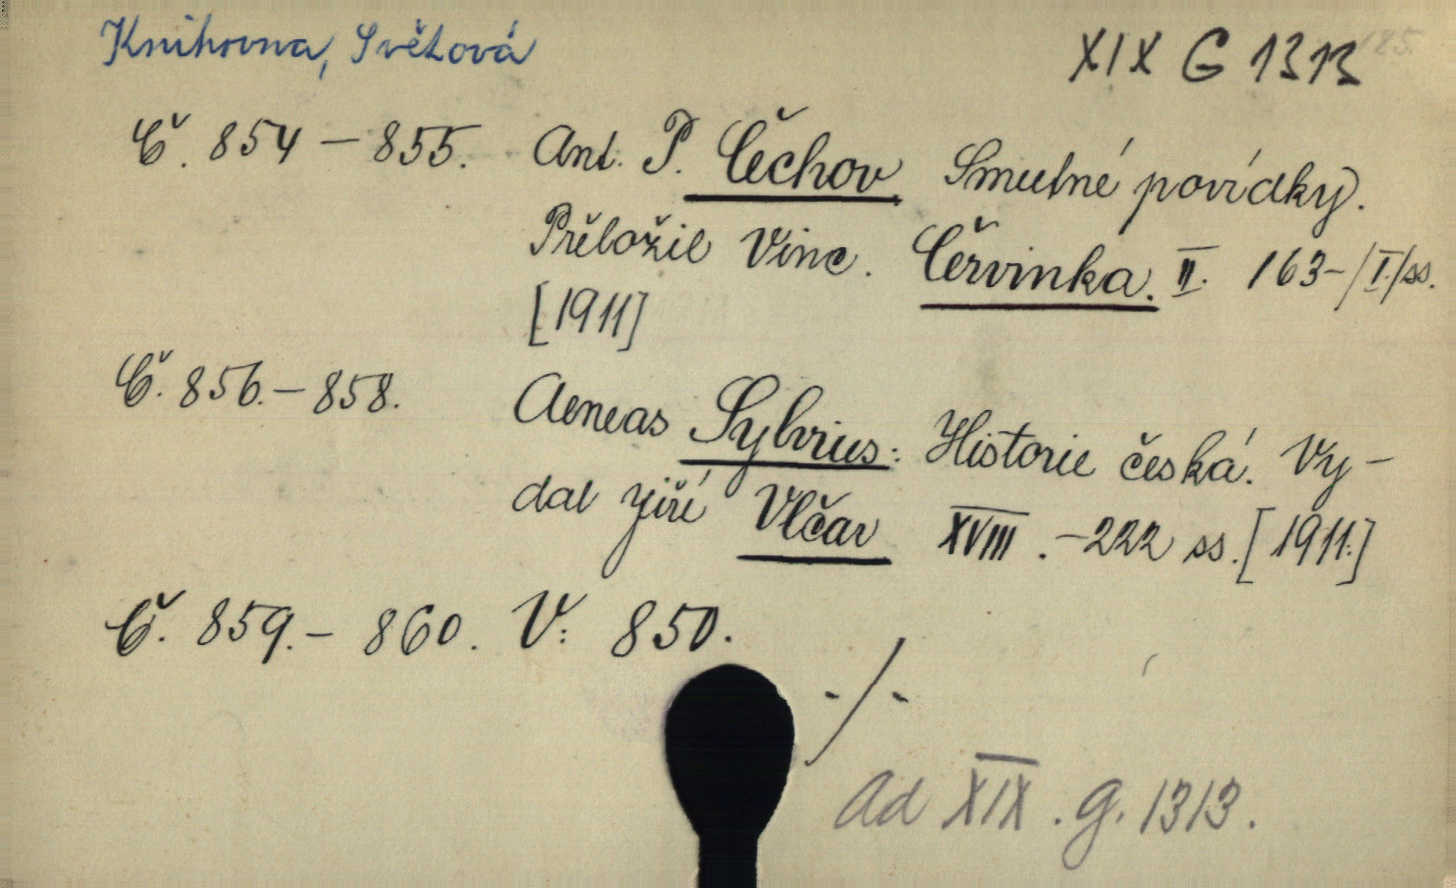 Knihovna, Světová
XIX G 1313 185.
Č. 854 – 855. Ant. P. Čechov Smutné povídky.
Přeložil Vinc. Červinka. II. 163–/I./ss.
[1911]
Č. 856. – 858. Aeneas Sylvius: Historie česká. Vy–
dal Jiří Vlčav XVIII. – 222 ss. [1911.]
Č. 859. – 860. V: 850.
-/-
Ad XIX. G. 1313.